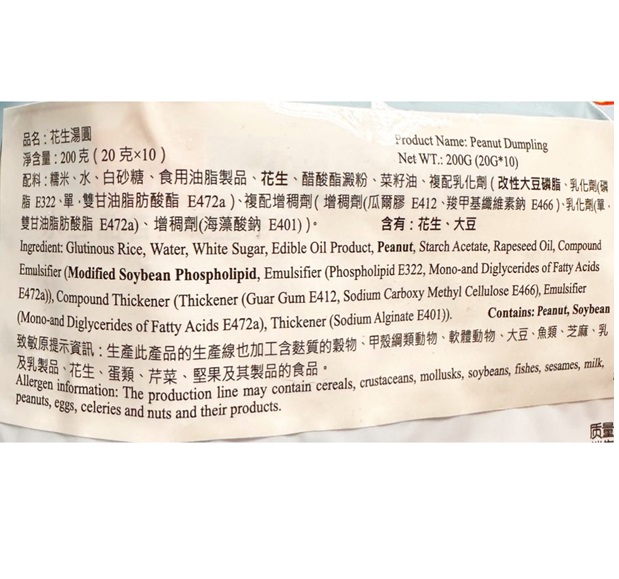 品名：花生湯圓
淨含量：200克（20克×10）
Product Name: Peanut Dumpling
Net WT.: 200G (20G*10)
配料：糯米、水、白砂糖、食用油脂製品、花生、醋酸酯澱粉、菜籽油、複配乳化劑（改性大豆磷脂、乳化劑(磷
脂 E322、單，雙甘油脂肪酸酯 E472a）、複配增稠劑（增稠劑(瓜爾膠 E412、羧甲基纖維素鈉 E466）、乳化劑(單，
雙甘油脂肪酸脂 E472a)、增稠劑(海藻酸鈉 E401)）。 含有：花生、大豆
Ingredient: Glutinous Rice, Water, White Sugar, Edible Oil Product, Peanut, Starch Acetate, Rapeseed Oil, Compound
Emulsifier (Modified Soybean Phospholipid, Emulsifier (Phospholipid E322, Mono-and Diglycerides of Fatty Acids
E472a)), Compound Thickener (Thickener (Guar Gum E412, Sodium Carboxy Methyl Cellulose E466), Emulsifier
(Mono-and Diglycerides of Fatty Acids E472a), Thickener (Sodium Alginate E401)). Contains: Peanut, Soybean
致敏原提示資訊：生產此產品的生產線也加工含麩質的穀物、甲殼綱類動物、軟體動物、大豆、魚類、芝麻、乳
及乳製品、花生、蛋類、芹菜、堅果及其製品的食品。
Allergen information: The production line may contain cereals, crustaceans, mollusks, soybeans, fishes, sesames, milk,
peanuts, eggs, celeries and nuts and their products.
质量